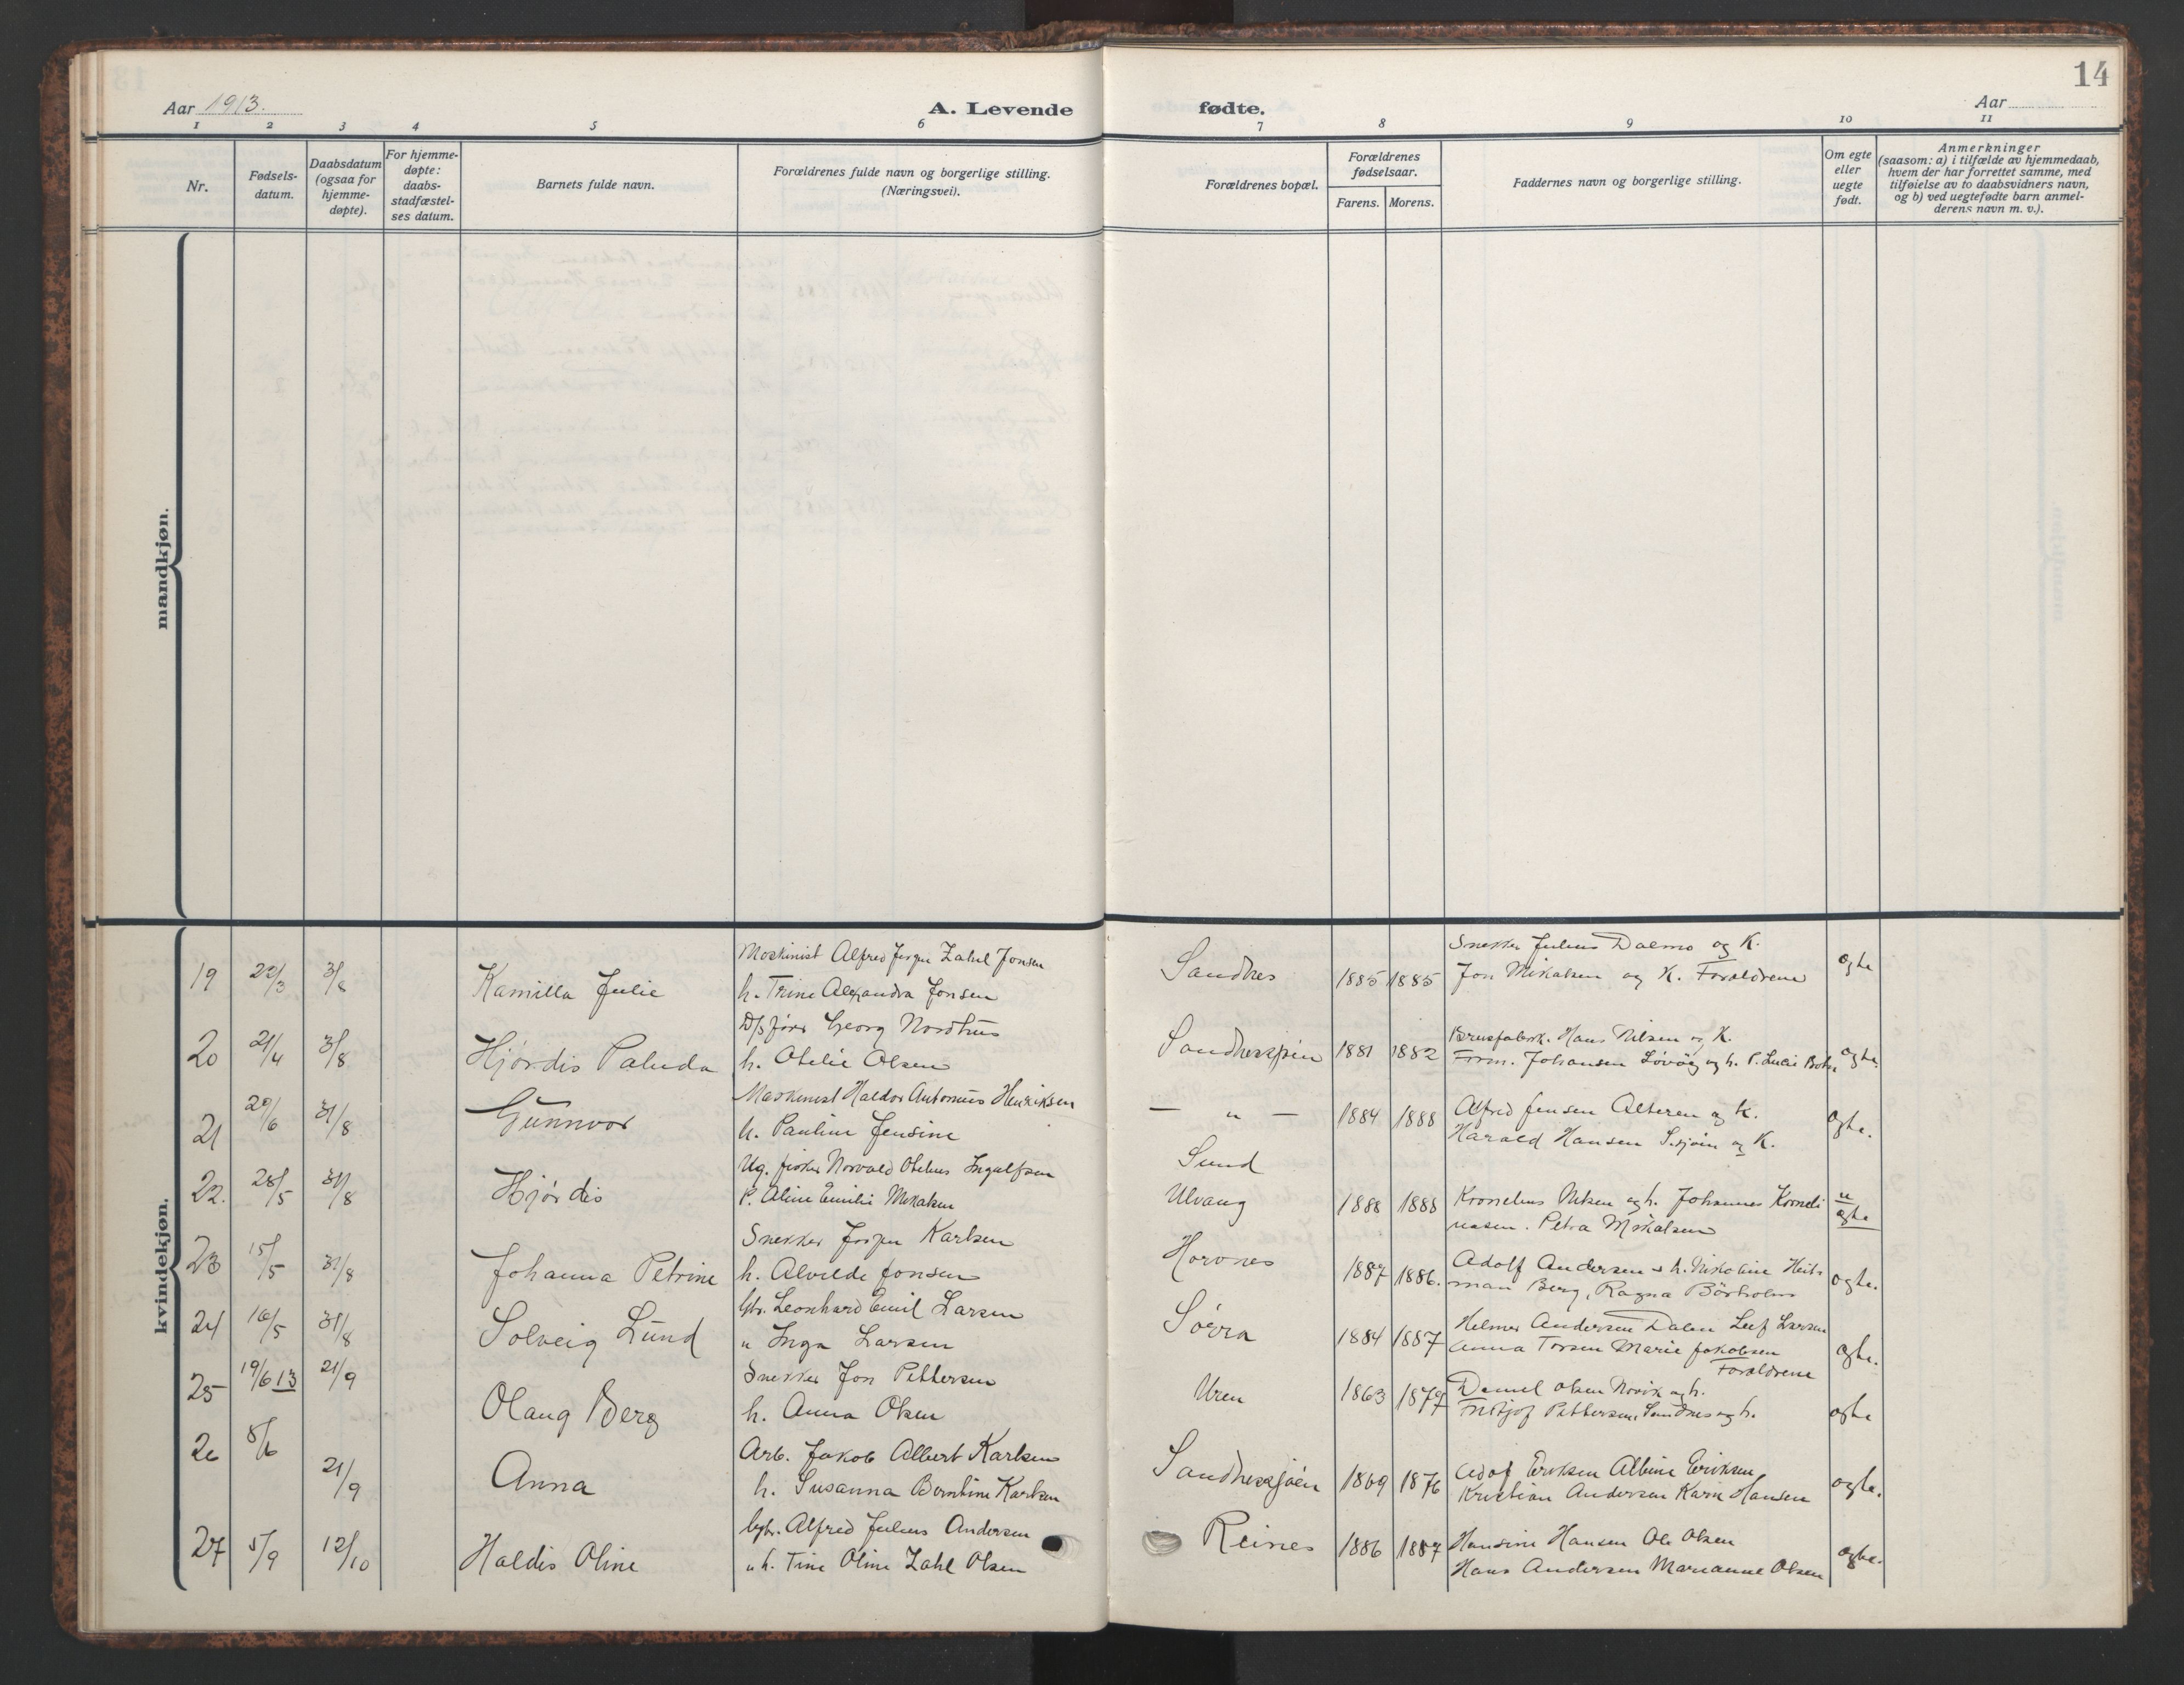 14
Aar 1913.
A. Levende fødte.
Aar
1 2 3 4 5 6 7 8 9 10 11
Nr.
Fødsels-
datum.
Daabsdatum
(ogsaa for
hjemme-
døpte).
For hjemme-
døpte:
daabs-
stadfæstel-
ses datum.
Barnets fulde navn.
Forældrenes fulde navn og borgerlige stilling.
(Næringsvei).
Forældrenes bopæl.
Forældrenes
fødselsaar.
Farens. Morens.
Faddernes navn og borgerlige stilling.
Om egte
eller
uegte
født.
Anmerkninger
(saasom: a) i tilfælde av hjemmedaab,
hvem der har forrettet samme, med
tilføielse av to daabsvidners navn,
og b) ved uegtefødte barn anmel-
derens navn m. v.).
mandkjøn.
kvindekjøn.
19 22/3 Kamilla Julie
Maskinist Alfred Jesper Zahl Jonsen
h. Trine Alexandra Jonsen
Sandnes 1885 1885
Snekker Julius Dalmo og K.
Jon Mikalsen og K. Forældrene
egte
20 21/4 31/8 Hjørdis Paluda
D/s fører Georg Nordhus
h. Otelie Olsen
Sandnessjøen 1881 1882
Brusfabrik. Hans Nilsen og K.
Johansen Løvöy og h. P. Lucie
egte.
21 29/6 31/8 Gunnvor
Maskinist Haldor Antonius Henriksen
h. Pauline Jensine
— " — 1884 1888
Alfred Jensen Alteren og K.
Harald Hansen S.sjøen og K.
egte.
22. 28/5 31/8 Hjørdis
Ug. fisker Norvald Otelius Ingulfsen
P. Aline Emilie Mikalsen
Sund
Ulvang 1888 1888
Kornelius Nilsen og h. Johannes Korneli
usen. Petra Mikalsen
u
egte
23 15/5 31/8 Johanna Petrine
Snekker Jesper Karlsen
h. Alvilde Jonsen
Horvnes 1887 1886.
Adolf Andersen & h. Nikoline Heit-
man Berg, Ragna Bårholm
egte.
24 16/5 31/8 Solveig Lund
Gbr. Leonhard Emil Larsen
" Inga Larsen
Søvra 1884 1887
Helmer Andersen Dalen Leif Larsen
Anna Torsen Marie Jakobsen
Forældrene
egte.
25 19/6 13 21/9 Olaug Berg
Snekker Jon Pettersen
h. Anna Olsen
Uren 1863 1879
Daniel Olsen Norvik og h.
Fritjof Pettersen, Sandnes og h.
egte
26 8/6 21/9 Anna
Arb. Jakob Albert Karlsen
h. Susanna Berntine Karlsen
Sandnessjøen 1869 1876
Adof Eriksen Albine Eriksen
Kristian Andersen Karn Hansen
egte.
27 5/9 12/10 Haldis Oline
Alfred Julius Andersen
u h. Tine Oline Zahl Olsen
Reines 1886 1887
Hansine Hansen Ole Olsen
Hans Andersen Marianne Olsen
egte.